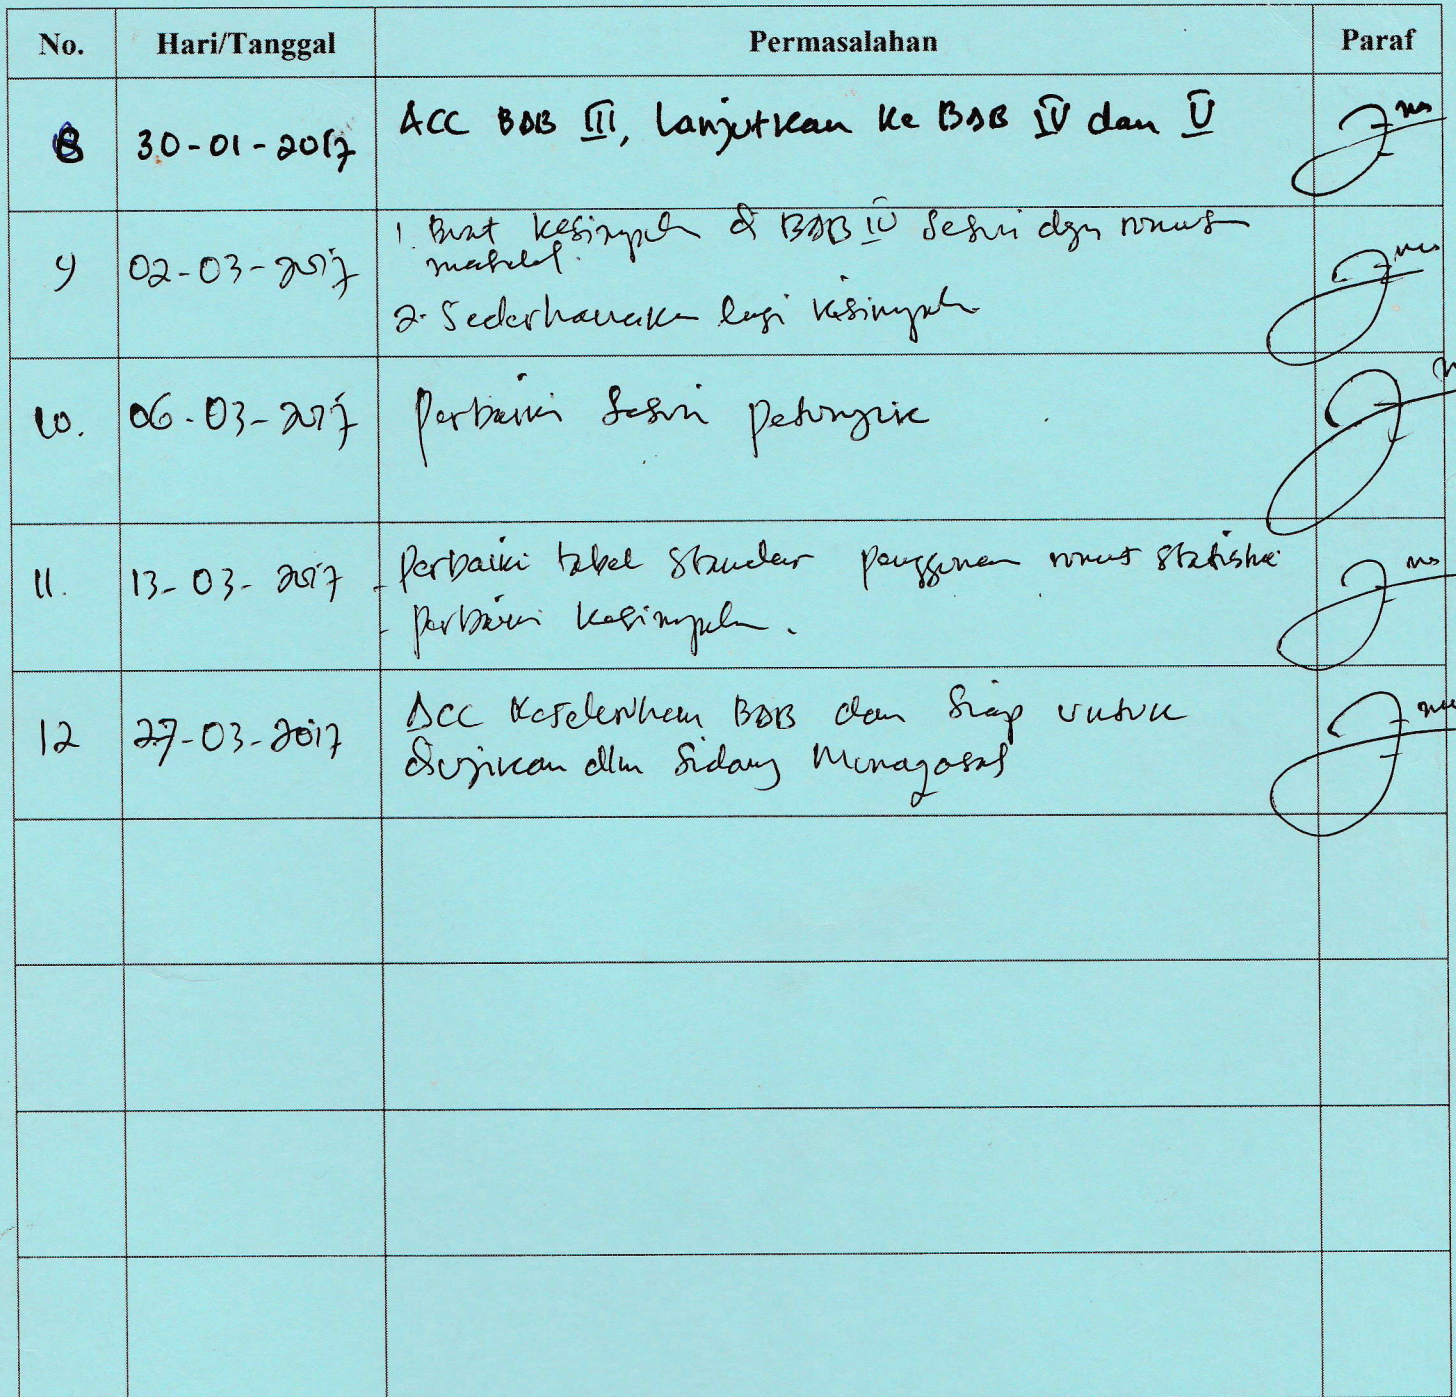 No. Hari/Tanggal Permasalahan Paraf
8 30-01-2017 ACC BAB III, Lanjutkan ke BAB IV dan V
9 02-03-2017 1. Buat kesimpulan di BAB IV sesuai dgn rumusan
masalah.
2. Sederhanakan lagi kesimpulan
10. 06-03-2017 Perbaiki sesuai petunjuk
11. 13-03-2017 - Perbaiki tabel standar penggunaan rumus statistik
- perbaiki kesimpulan.
12 27-03-2017 ACC Keseluruhan BAB dan siap untuk
diujikan dlm Sidang Munaqosah